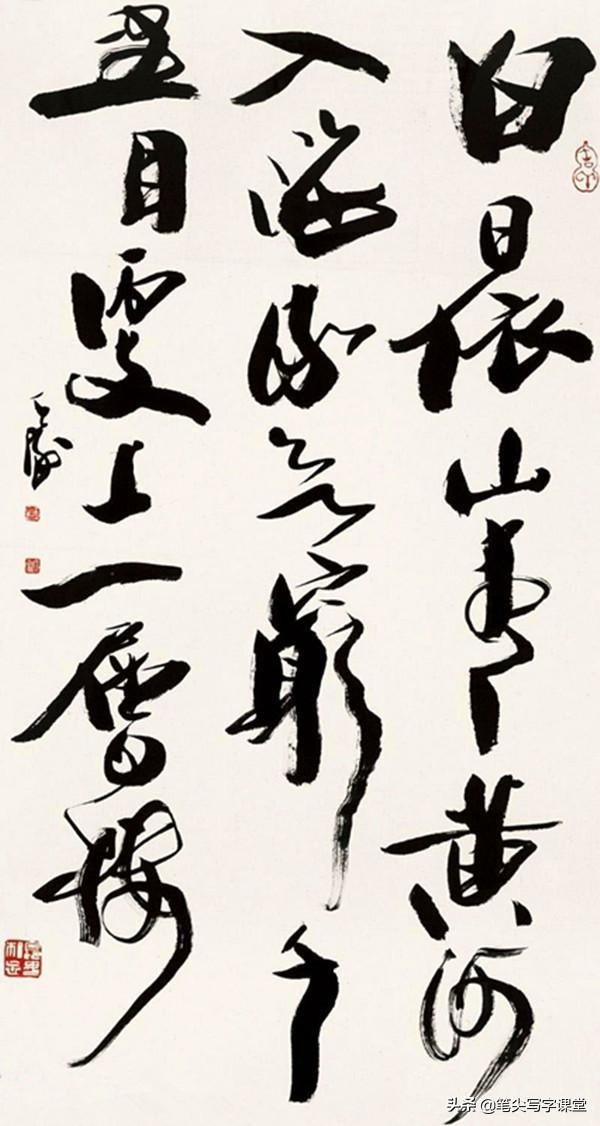 白日依山盡黄河
入海流欲窮千
里目更上一層樓
头条 @笔尖写字课堂